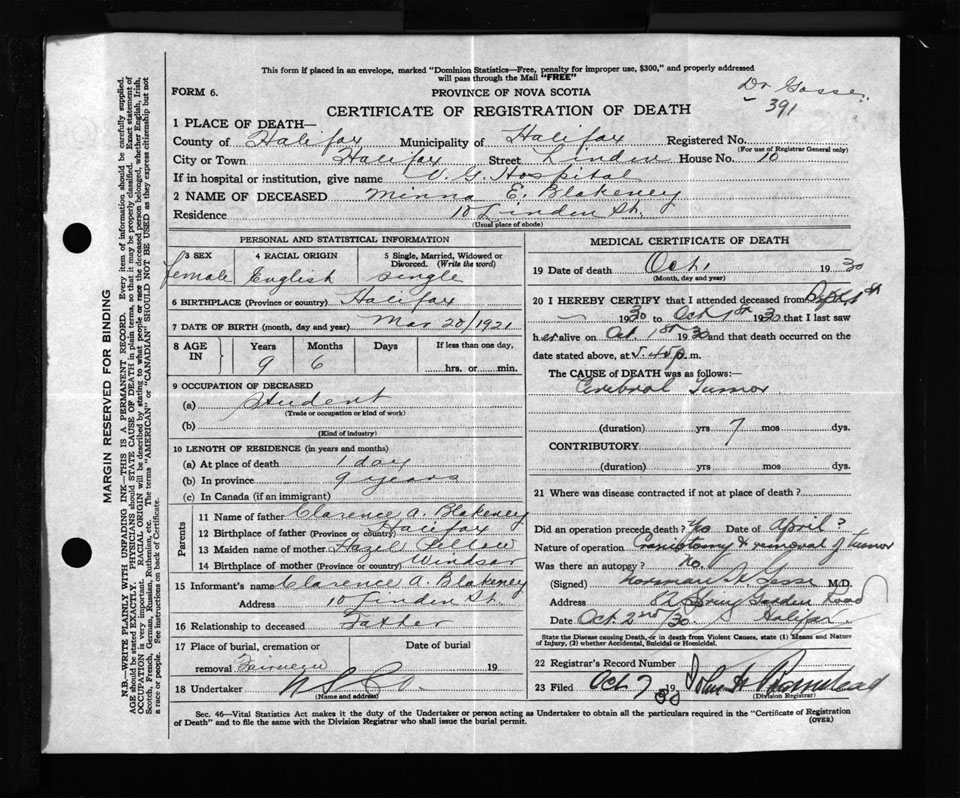 This form if placed in an envelope, marked "Dominion Statistics—Free, penalty for improper use, $300," and properly addressed
will pass through the Mail "FREE"
FORM 6.
PROVINCE OF NOVA SCOTIA
Dr Gosse.
391
CERTIFICATE OF REGISTRATION OF DEATH
1 PLACE OF DEATH—
County of Halifax Municipality of Halifax Registered No.
(For use of Registrar General only)
City or Town Halifax Street Linden House No. 10
If in hospital or institution, give name V. G. Hospital
2 NAME OF DECEASED Minna E. Blakeney
Residence 10 Linden St.
(Usual place of abode)
PERSONAL AND STATISTICAL INFORMATION
3 SEX 4 RACIAL ORIGIN 5 Single, Married, Widowed or
Divorced. (Write the word)
female English single
6 BIRTHPLACE (Province or country) Halifax
7 DATE OF BIRTH (month, day and year) Mar 20/1921
8 AGE IN Years Months Days If less than one day,
9 6 hrs. or min.
9 OCCUPATION OF DECEASED
(a) Student
(Trade or occupation or kind of work)
(b)
(Kind of industry)
10 LENGTH OF RESIDENCE (in years and months)
(a) At place of death 1 day
(b) In province 9 years
(c) In Canada (if an immigrant)
Parents
11 Name of father Clarence A. Blakeney
12 Birthplace of father (Province or country) Halifax
13 Maiden name of mother Hazel
14 Birthplace of mother (Province or country) Windsor
15 Informant's name Clarence A. Blakeney
Address 10 Linden St.
16 Relationship to deceased Father
17 Place of burial, cremation or Date of burial
removal Fairview 19
18 Undertaker
(Name and address)
MEDICAL CERTIFICATE OF DEATH
19 Date of death Oct 1 1930
(Month, day and year)
20 I HEREBY CERTIFY that I attended deceased from Sept 1st
1930 to Oct 1st 1930 that I last saw
her alive on Oct. 1st 1930 and that death occurred on the
date stated above, at 5.45 p. m.
The CAUSE of DEATH was as follows:—
Cerebral Tumor
(duration) yrs 7 mos dys.
CONTRIBUTORY
(duration) yrs. mos. dys.
21 Where was disease contracted if not at place of death?
Did an operation precede death? Yes Date of April?
Nature of operation Craniotomy & removal of tumor
Was there an autopsy? No.
(Signed) Norman H. Gosse M.D.
Address 82 Spring Garden Road
Date Oct. 2nd /30 Halifax
State the Disease causing Death, or in death from Violent Causes, state (1) Means and Nature
of Injury, (2) whether Accidental, Suicidal or Homicidal.
22 Registrar's Record Number
23 Filed Oct 7 1930 John
(Division Registrar)
Sec. 46—Vital Statistics Act makes it the duty of the Undertaker or person acting as Undertaker to obtain all the particulars required in the "Certificate of Registration
of Death" and to file the same with the Division Registrar who shall issue the burial permit.
(OVER)
MARGIN RESERVED FOR BINDING
N.B.—WRITE PLAINLY WITH UNFADING INK—THIS IS A PERMANENT RECORD. Every item of information should be carefully supplied.
AGE should be stated EXACTLY. PHYSICIANS should STATE CAUSE OF DEATH in plain terms, so that it may be properly classified. Exact statement of
OCCUPATION is very important. RACIAL ORIGIN will be described by stating to what people or race the deceased person belonged, whether English, Irish,
Scotch, French, German, Russian, Ruthenian, etc. The terms "AMERICAN" or "CANADIAN" SHOULD NOT BE USED as they express citizenship but not
a race or people. See instructions on back of Certificate.